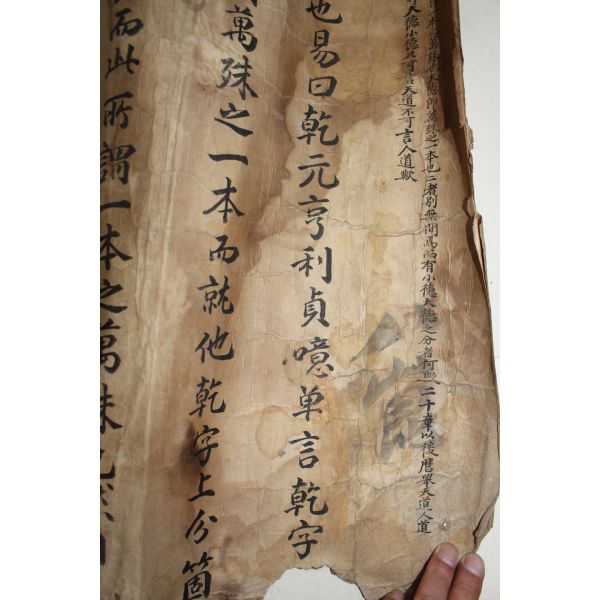 本之萬殊也大德即萬殊之一本也二者別無間焉而有小德大德之分者何歟二十章以後曆擧天道人道
大德小德只可言天道不可言人道歟
也易曰乾元亨利貞噫单言乾字
萬殊之一本而就他乾字上分箇
而此所謂一本之萬殊